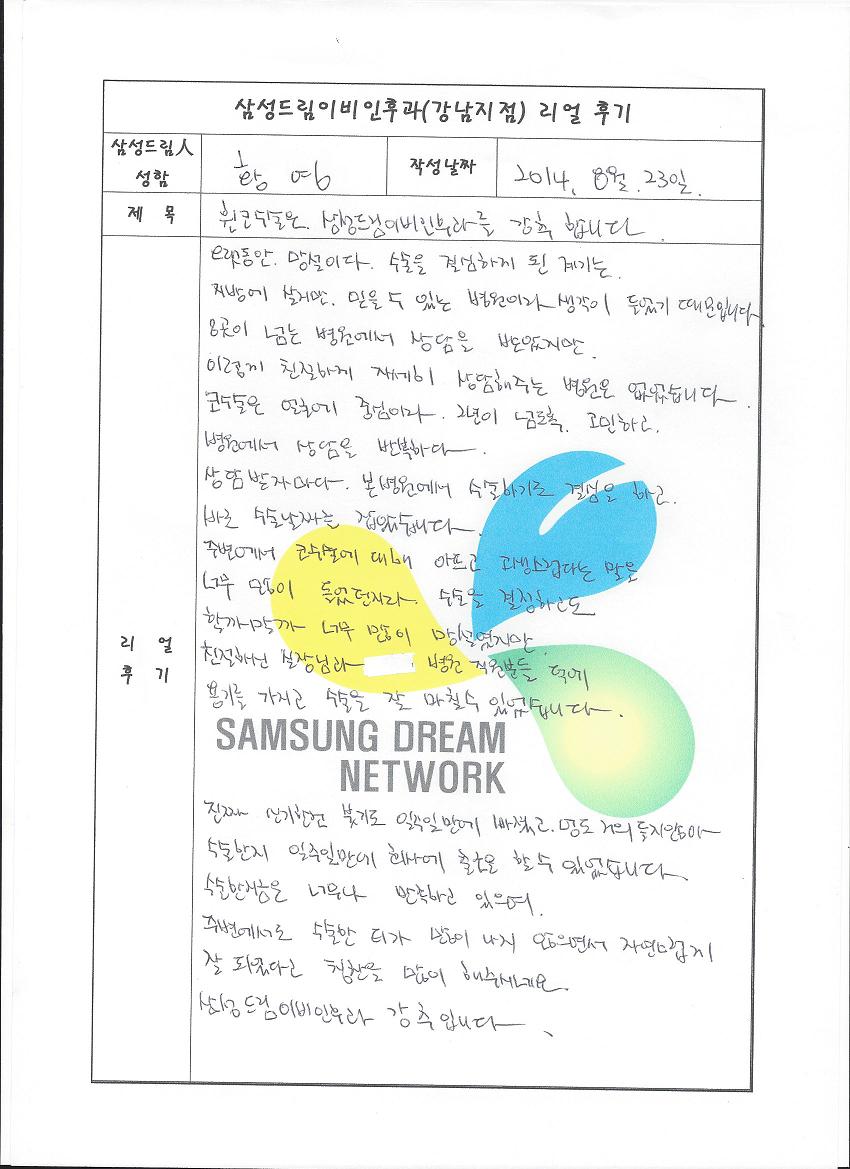 삼성드림이비인후과(강남지점) 리얼 후기
삼성드림人 성함
황 여
작성날짜
2014. 8월. 23일.
제 목
휜코수술은. 삼성드림이비인후과를 강추 합니다.
리 얼 후 기
오랫동안. 망설이다. 수술을 결심하게 된 계기는.
지방에 살지만. 믿을 수 있는 병원이라 생각이 들었기 때문입니다
8곳이 넘는 병원에서 상담을 받았지만.
이렇게 친절하게 자세히 상담해주는 병원은 없었습니다.
코수술은 얼굴에 중심이라. 2년이 넘도록. 고민하고.
병원에서 상담을 반복하다.
상담받자마다. 본병원에서 수술하기로 결심을 하고.
바로 수술날짜를 잡았습니다.
주변에서 코수술에 대해 아프고 고생스럽다는 말을
너무 많이 들었던지라. 수술을 결정하고도
할까말까 너무 많이 망설였지만
친절하신 실장님과 병원 직원분들 덕에
용기를 가지고 수술을 잘 마칠수 있었습니다.
SAMSUNG DREAM
NETWORK
진짜 신기한건 붓기도 일주일만에 빠졌고. 멍도 거의 들지않아
수술한지 일주일만에 회사에 출근을 할 수 있었습니다.
수술한지금은 너무나 만족하고 있으며.
주변에서도 수술한 티가 많이 나지 않으면서 자연스럽게
잘 되었다고 칭찬을 많이 해주시네요.
삼성드림이비인후과 강추입니다.